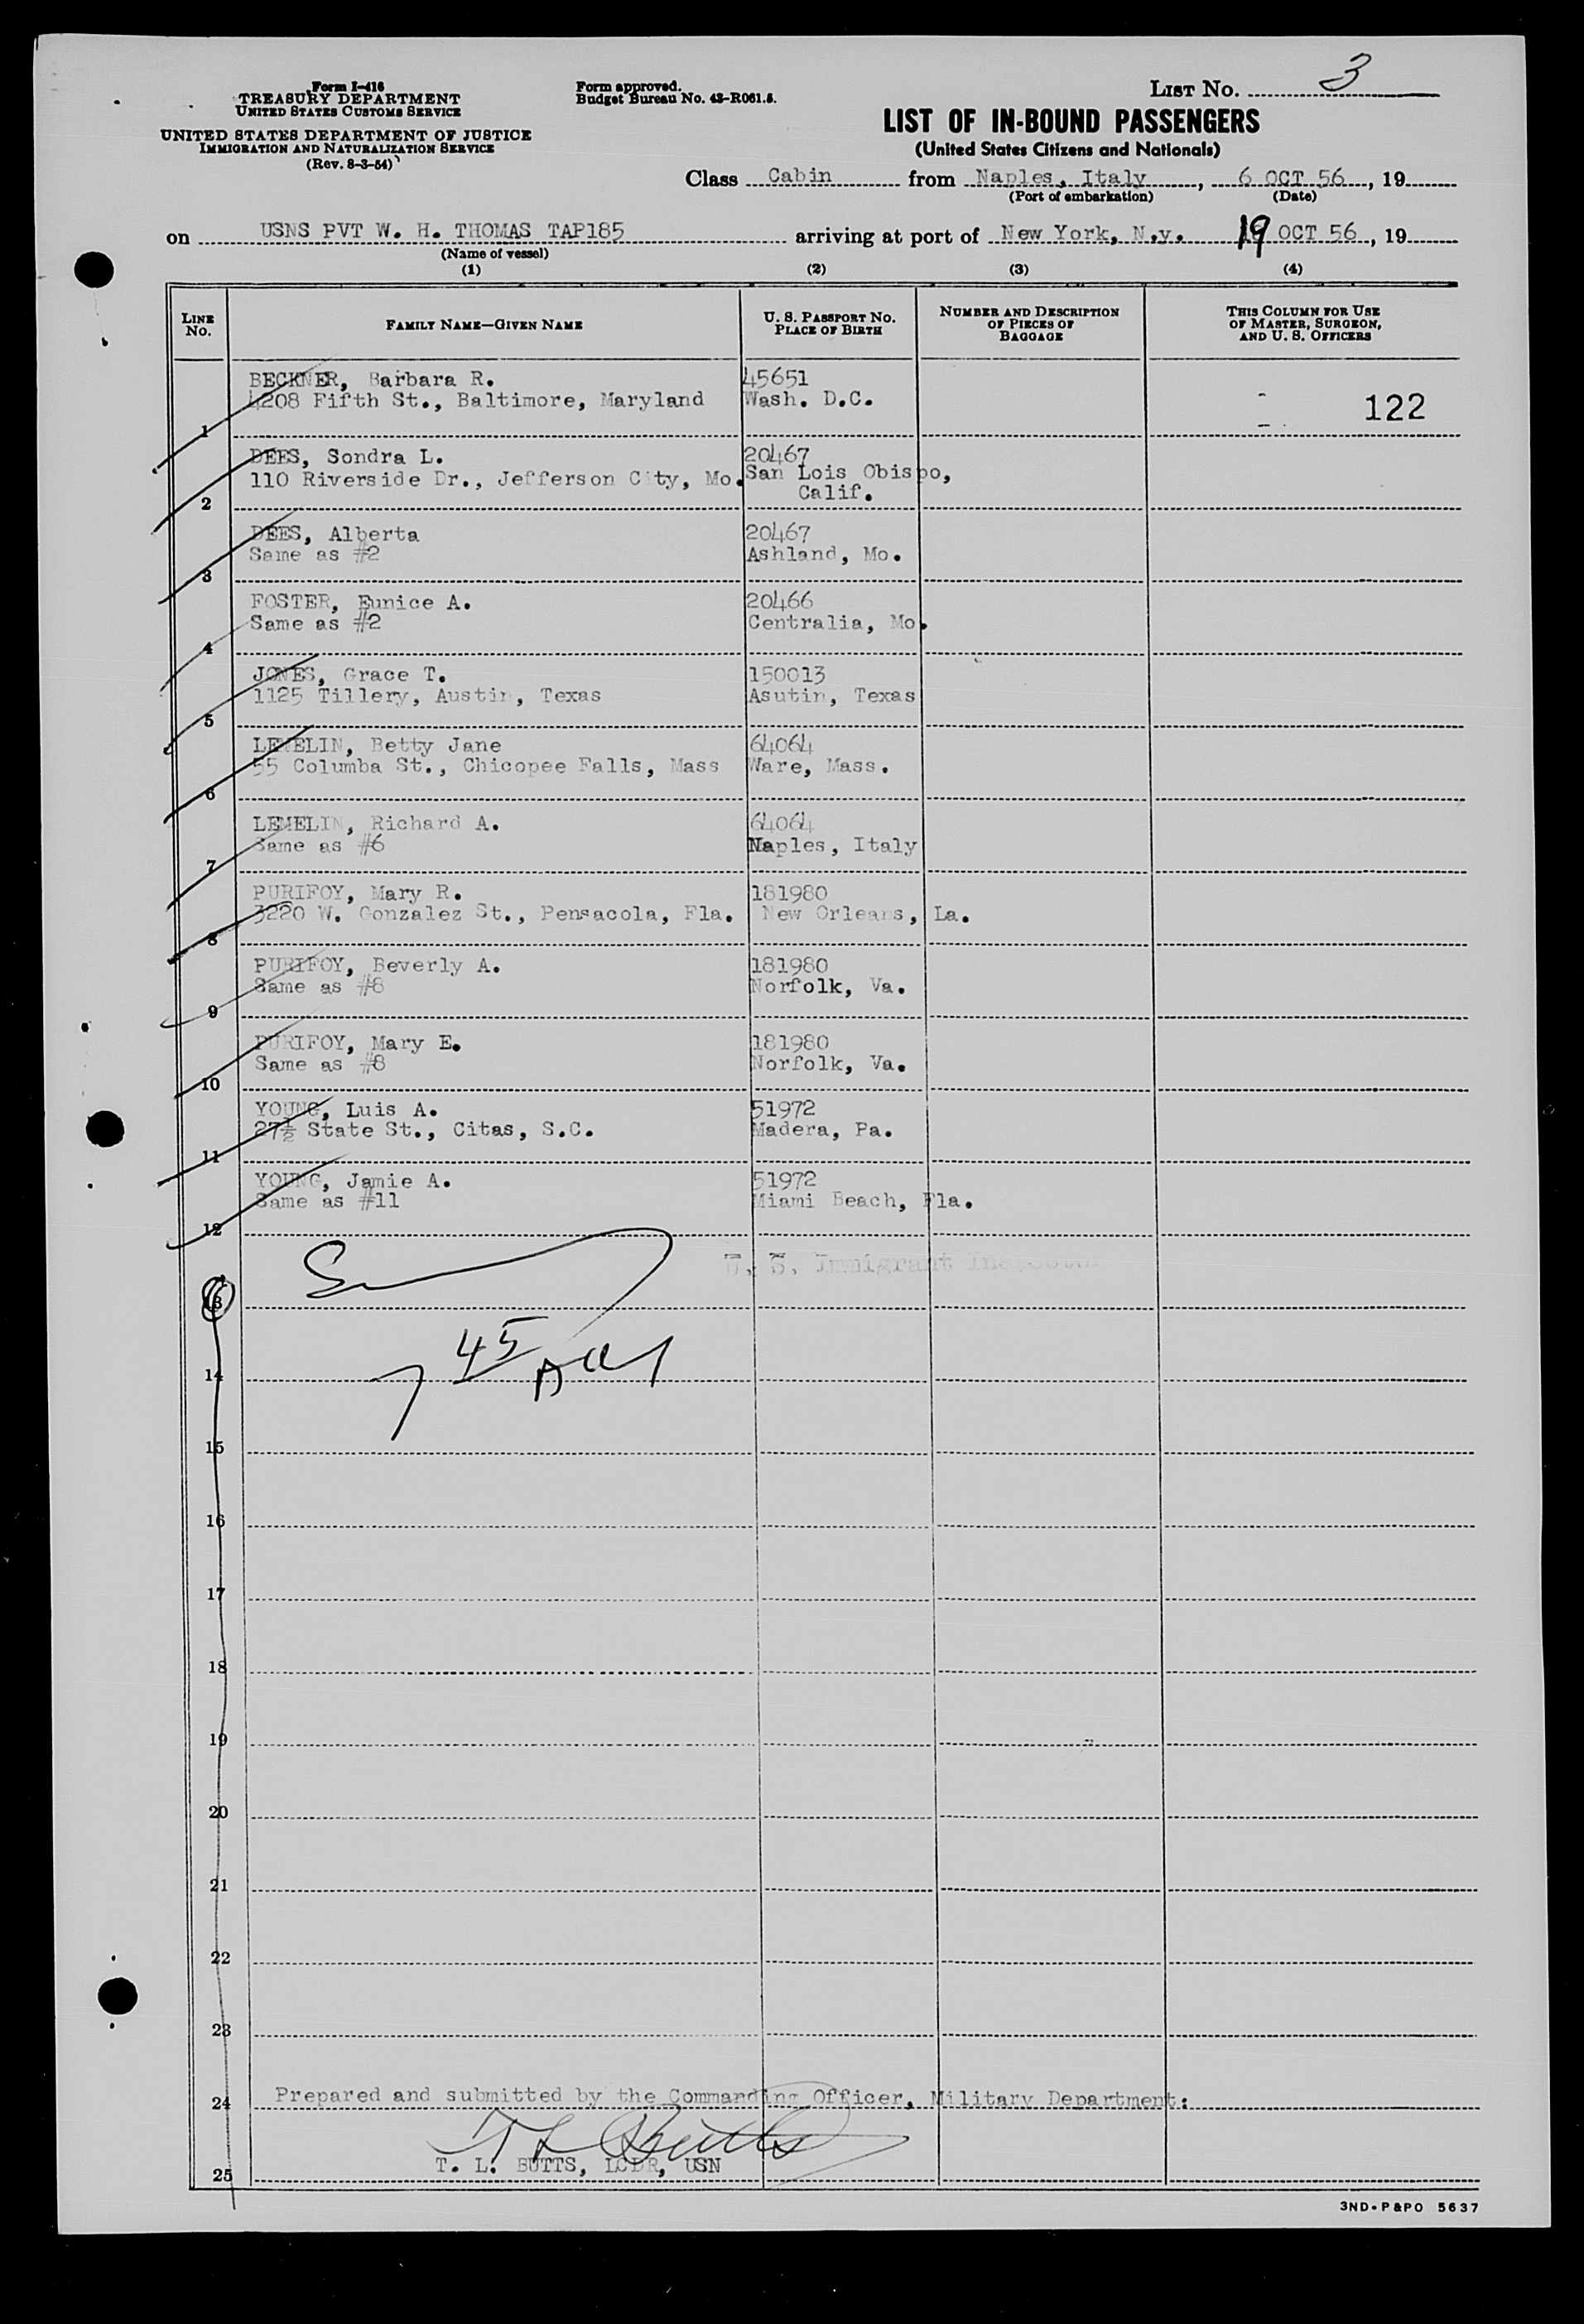 Form I-416
TREASURY DEPARTMENT
UNITED STATES CUSTOMS SERVICE
UNITED STATES DEPARTMENT OF JUSTICE
IMMIGRATION AND NATURALIZATION SERVICE
(Rev. 8-3-54)
Form approved.
Budget Bureau No. 43-R061.5.
LIST No. 3
LIST OF IN-BOUND PASSENGERS
(United States Citizens and Nationals)
Class Cabin from Naples, Italy, 6 OCT 56, 19
(Port of embarkation) (Date)
on USNS PVT W. H. THOMAS TAP185 arriving at port of New York, N.y. 19 OCT 56, 19
(Name of vessel)
(1) (2) (3) (4)
LINE No. FAMILY NAME—GIVEN NAME U. S. PASSPORT No. PLACE OF BIRTH NUMBER AND DESCRIPTION OF PIECES OF BAGGAGE THIS COLUMN FOR USE OF MASTER, SURGEON, AND U. S. OFFICERS
BECKNER, Barbara R. 45651
4208 Fifth St., Baltimore, Maryland Wash. D.C. 122
1
DEES, Sondra L. 20467
110 Riverside Dr., Jefferson City, Mo. San Lois Obispo,
Calif.
2
DEES, Alberta 20467
Same as #2 Ashland, Mo.
3
FOSTER, Eunice A. 20466
Same as #2 Centralia, Mo.
4
JONES, Grace T. 150013
1125 Tillery, Austin, Texas Asutin, Texas
5
LEMELIN, Betty Jane 64064
55 Columba St., Chicopee Falls, Mass Ware, Mass.
6
LEMELIN, Richard A. 64064
Same as #6 Naples, Italy
7
PURIFOY, Mary R. 181980
3220 W. Gonzalez St., Pensacola, Fla. New Orleans, La.
8
PURIFOY, Beverly A. 181980
Same as #8 Norfolk, Va.
9
PURIFOY, Mary E. 181980
Same as #8 Norfolk, Va.
10
YOUNG, Luis A. 51972
27½ State St., Citas, S.C. Madera, Pa.
11
YOUNG, Jamie A. 51972
Same as #11 Miami Beach, Fla.
12
U. S. Immigrant Inspector
13
45
14
15
16
17
18
19
20
21
22
23
Prepared and submitted by the Commanding Officer, Military Department:
24
T L Butts
T. L. BUTTS, LCDR, USN
25
3ND-P&PO 5637